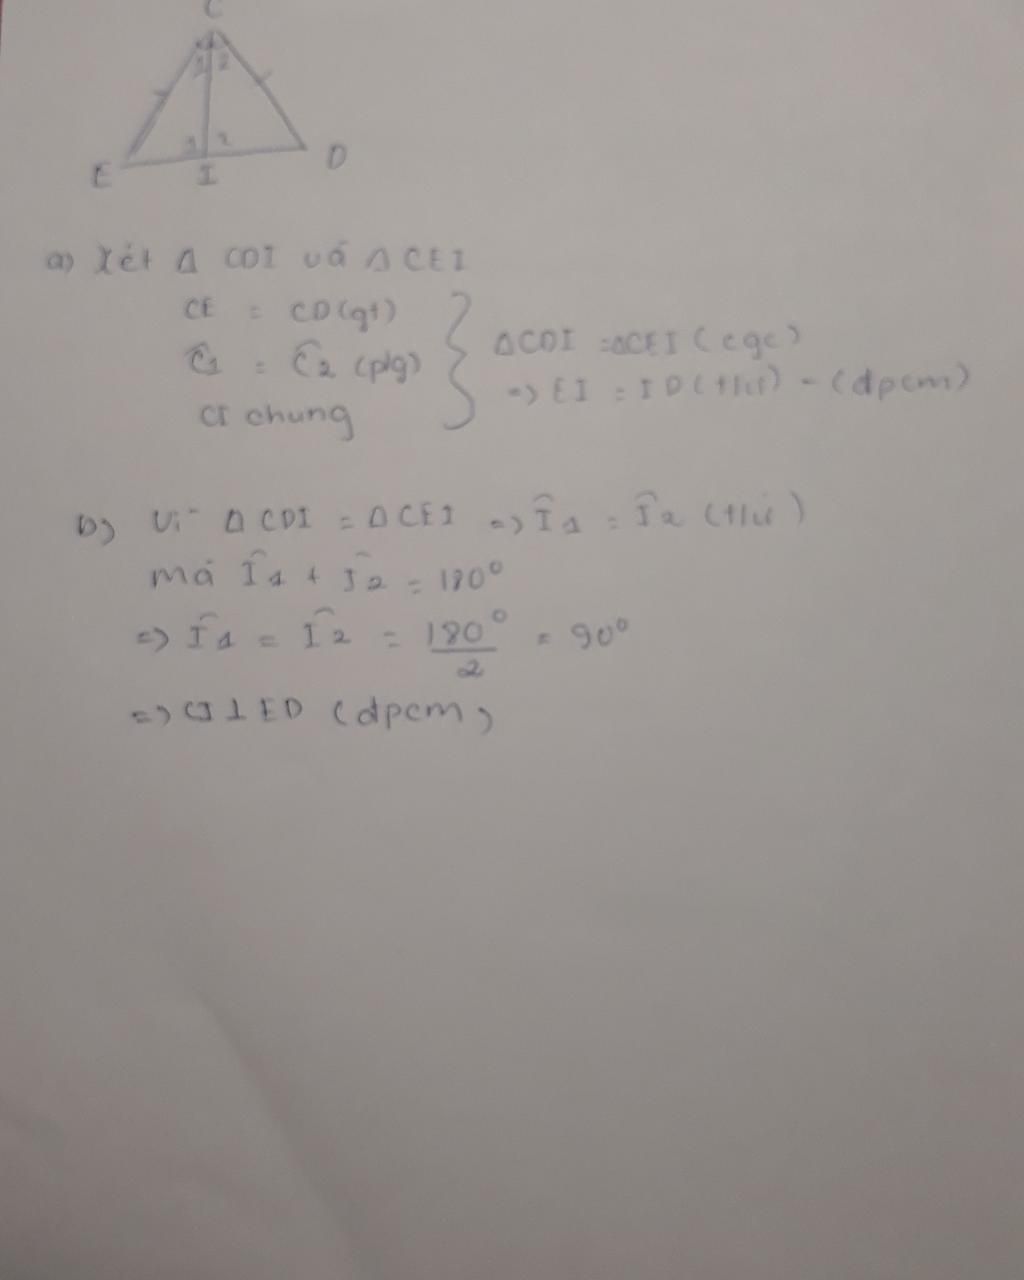 C
1 2
1 2
E I D
a) Xét Δ CDI và Δ CEI
CE = CD (gt)
Ĉ1 = Ĉ2 (p/g)
CI chung
ΔCDI = ΔCEI (cgc)
=> EI = ID (t/ứ) - (dpcm)
b) Vì Δ CDI = Δ CEI => Î1 = Î2 (t/ứ)
mà Î1 + Î2 = 180°
=> Î1 = Î2 = 180°/2 = 90°
=> CI ⊥ ED (dpcm)